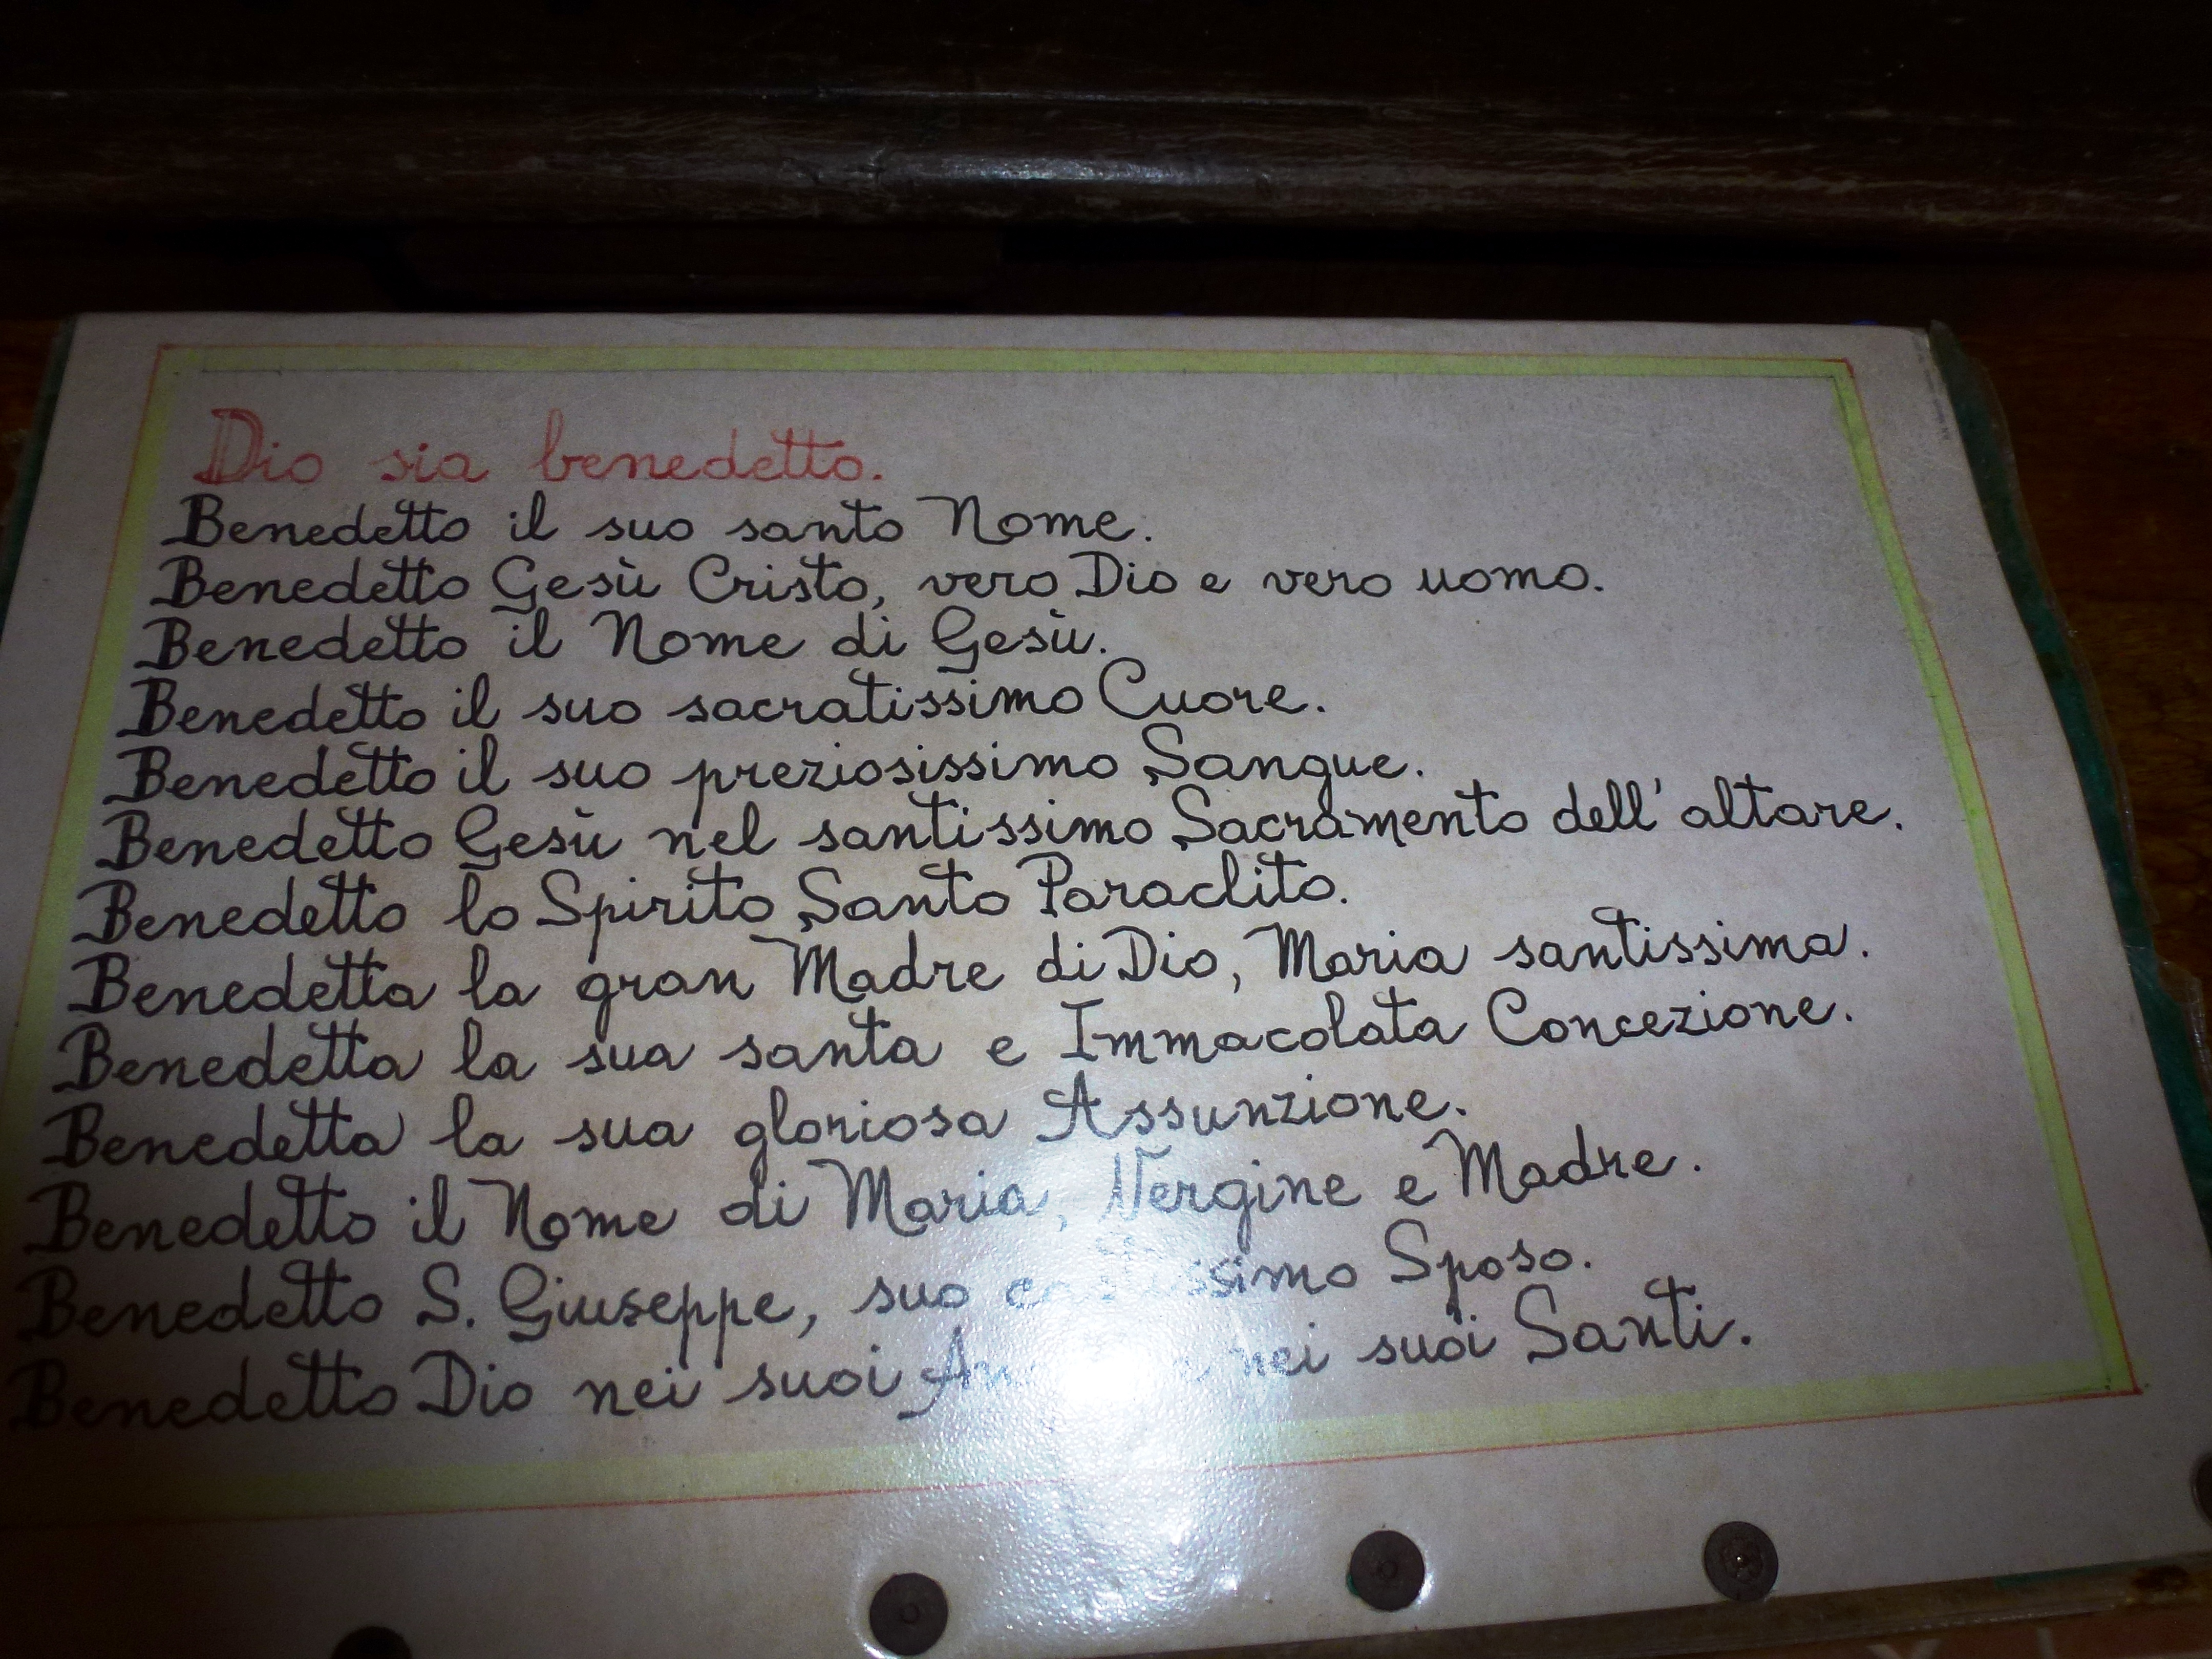 Dio sia benedetto.
Benedetto il suo santo Nome.
Benedetto Gesù Cristo, vero Dio e vero uomo.
Benedetto il Nome di Gesù.
Benedetto il suo sacratissimo Cuore.
Benedetto il suo preziosissimo Sangue.
Benedetto Gesù nel santissimo Sacramento dell'altare.
Benedetto lo Spirito Santo Paraclito.
Benedetta la gran Madre di Dio, Maria santissima.
Benedetta la sua santa e Immacolata Concezione.
Benedetta la sua gloriosa Assunzione.
Benedetto il Nome di Maria, Vergine e Madre.
Benedetto S. Giuseppe, suo castissimo Sposo.
Benedetto Dio nei suoi nei suoi Santi.